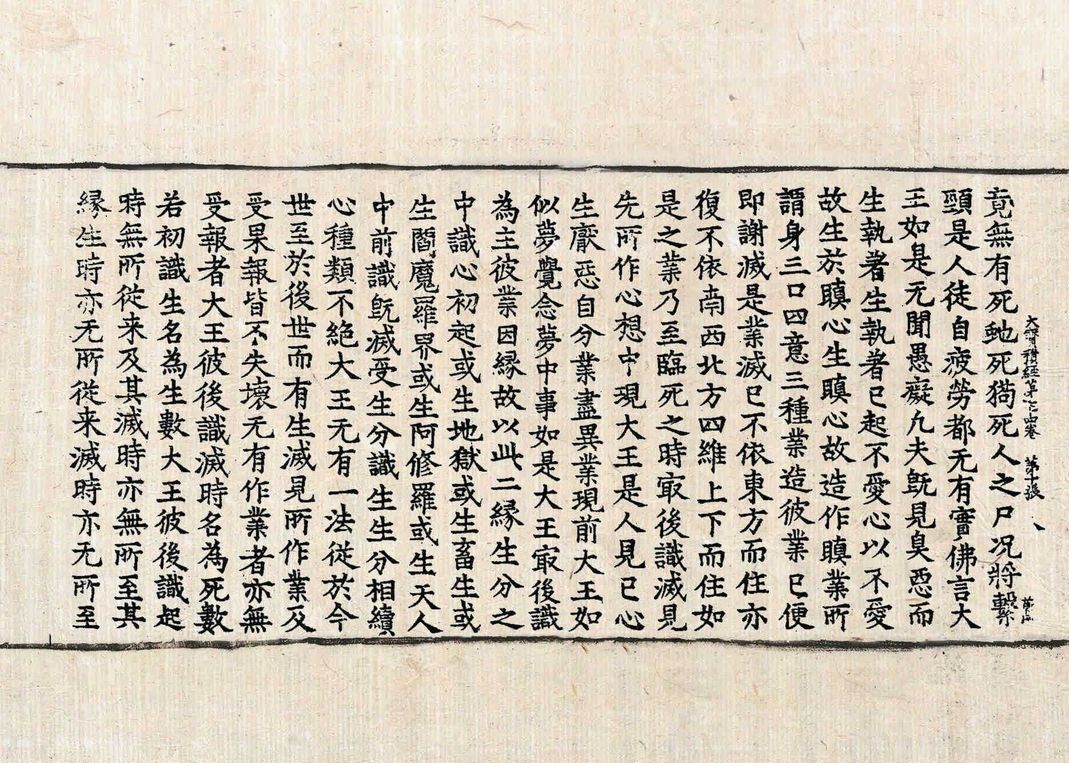 大寶積經第七十四卷 第十張
竟無有死虵死猗死人之尸况將轚
頸是人徒自疲勞都无有實佛言大
王如是无聞愚癡凢夫旣見臭惡而
生執著生執著已起不愛心以不愛
故生於瞋心生瞋心故造作瞋業所
謂身三口四意三種業造彼業已便
即謝滅是業滅已不依東方而住亦
復不依南西北方四維上下而住如
是之業乃至臨死之時㝡後識滅見
先所作心想中現大王是人見已心
生厭惡自分業盡異業現前大王如
似夢覺念夢中事如是大王㝡後識
為主彼業因縁故以此二縁生分之
中識心初起或生地獄或生畜生或
生閻魔羅界或生阿修羅或生天人
中前識旣滅受生分識生生分相續
心種類不絶大王无有一法從於今
世至於後世而有生滅見所作業及
受果報皆不失壞无有作業者亦無
受報者大王彼後識滅時名為死數
若初識生名為生數大王彼後識起
時無所從来及其滅時亦無所至其
縁生時亦无所從来滅時亦无所至